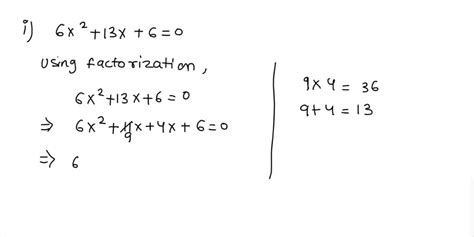 i) 6x² + 13x + 6 = 0
using factorization,
6x² + 13x + 6 = 0
⇒ 6x² + 9x + 4x + 6 = 0
⇒ 6
9 x 4 = 36
9 + 4 = 13